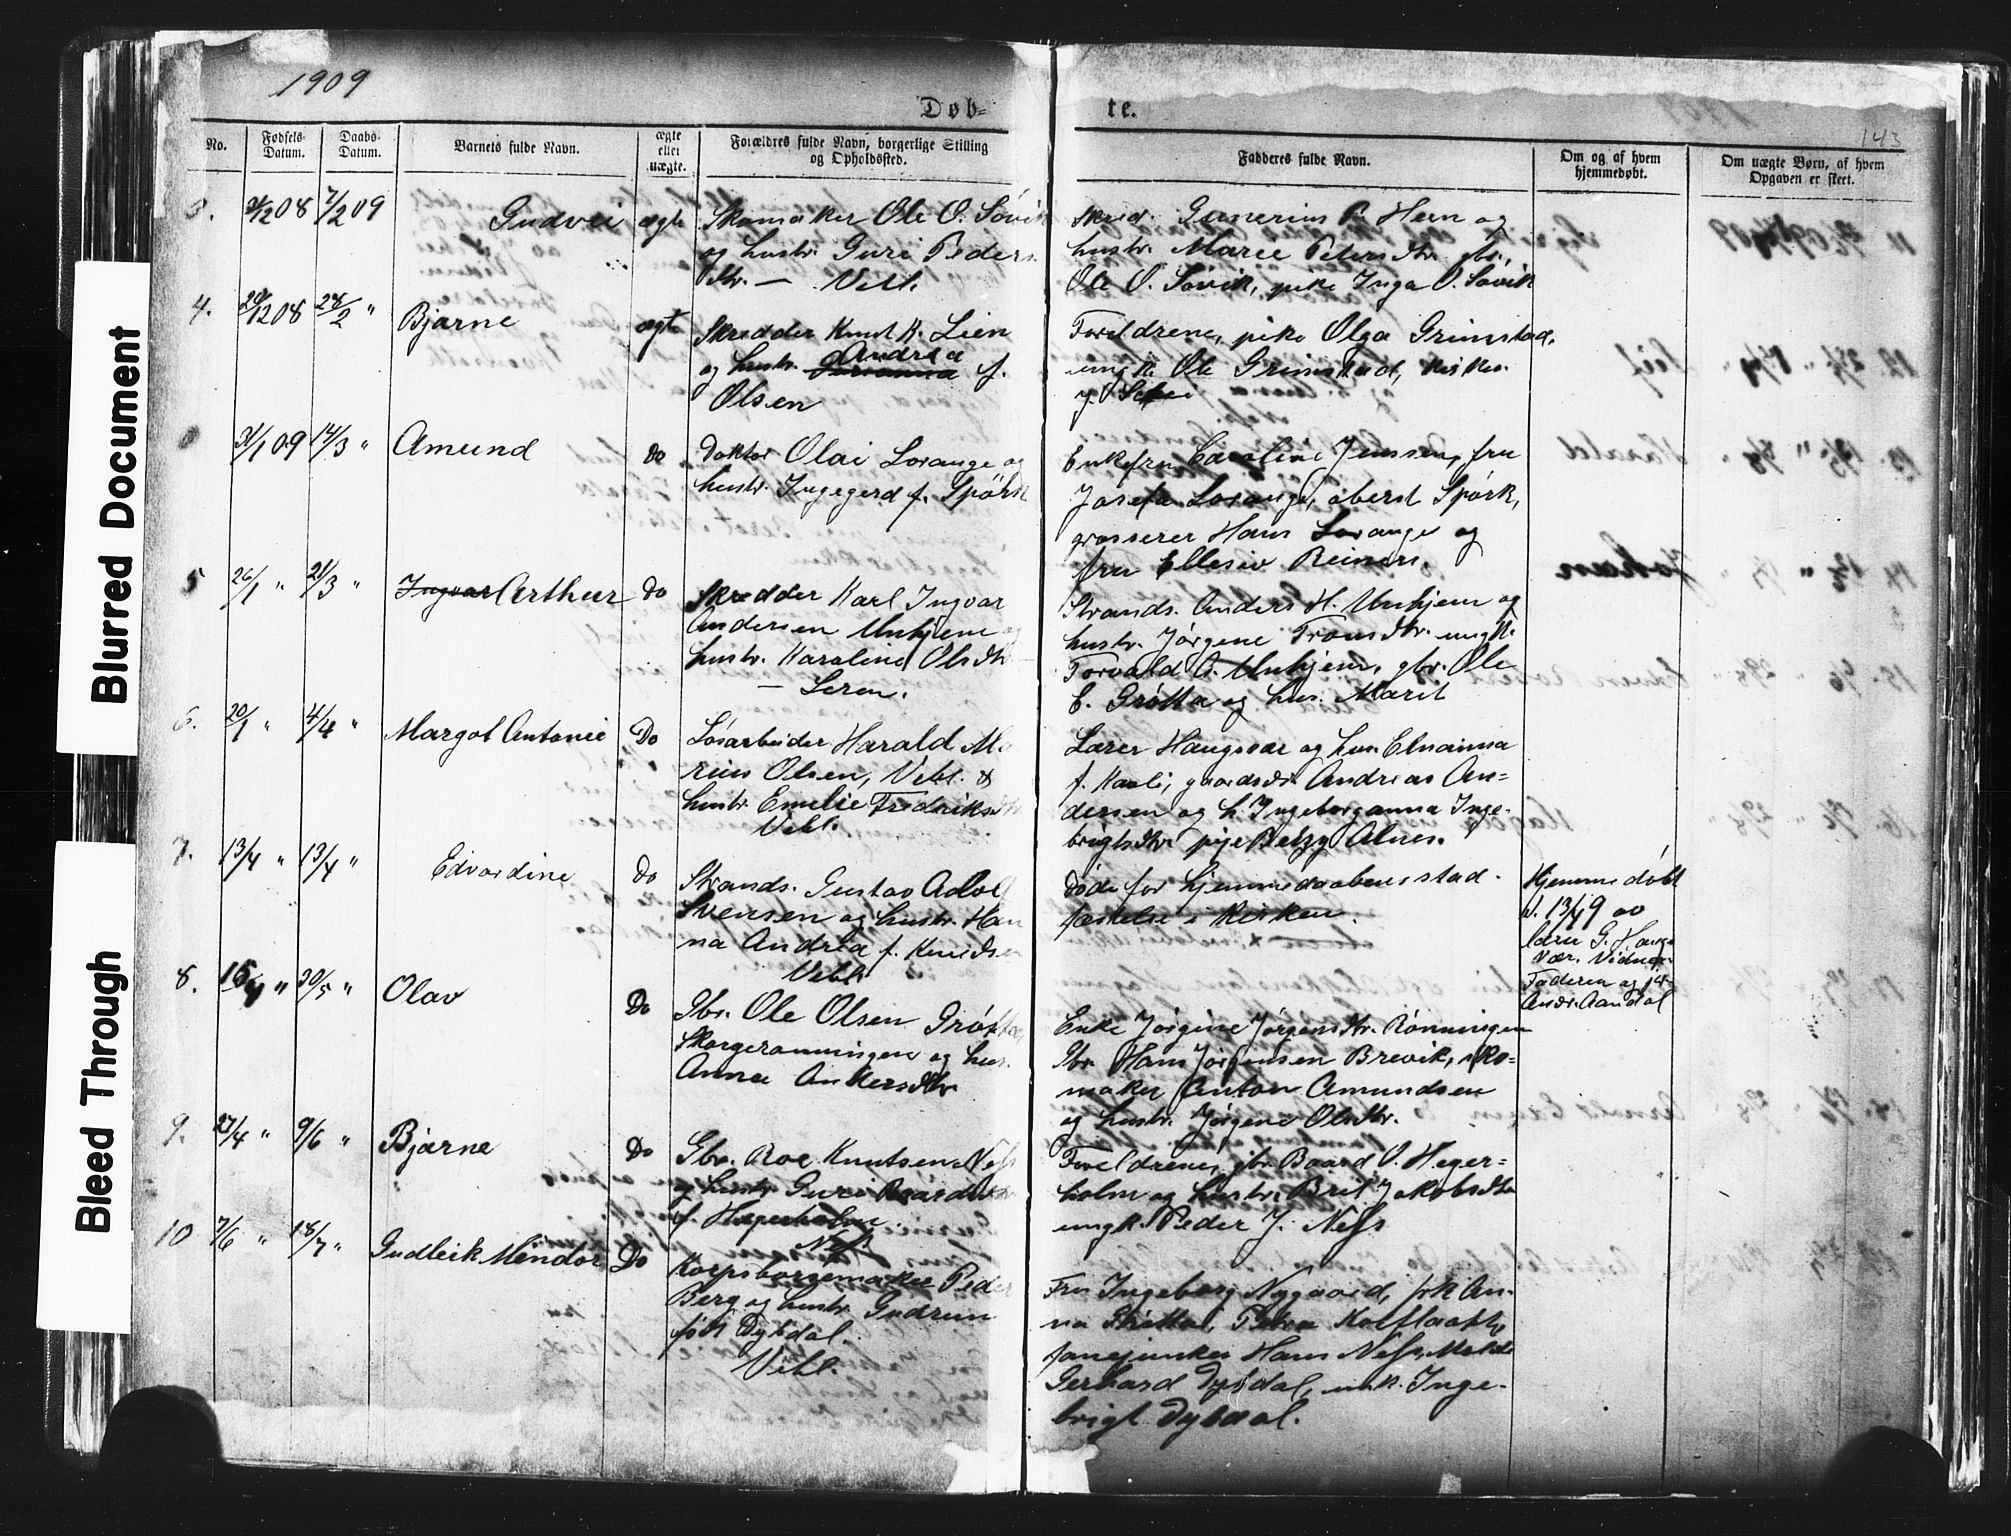 Blurred Document
Bleed Through
1909
Døb-
te.
143
No.
Fødsels-
Datum.
Daabs-
Datum.
Barnets fulde Navn.
ægte
eller
uægte.
Forældres fulde Navn, borgerlige Stilling
og Opholdssted.
Fadderes fulde Navn.
Om og af hvem
hjemmedøbt.
Om uægte Børn, af hvem
Opgaven er skeet.
3. 7/2 09 Gudvei ægte
Skomaker Ole O. Søvik
og hustr. Guri Peders
dtr. — Vebl.
Skred. Gunerius P. Heen og
hustr. Maree Petersdtr. gbr.
Ole O. Søvik, pike Inga O. Søvik
4. 29/12 08 28/2 " Bjarne ægte
Skredder Knut K. Lien
og hustr. Andrea f.
Olsen
Foreldrene, pike Olga Grimstad,
ungk. Ole Grimstad, kirkes.
31/1 09 14/3 " Amund do
Doktor Olai Lorange og
hustr. Ingegerd f. Spørck
Enkefru Caroline Jenssen, fru
Josefa Lorange, oberst Spørk,
grosserer Hans Lorange og
fru Ellesiv Reiners.
5 26/1 " 21/3 " Ingvar Arthur do
Skredder Karl Ingvar
Andersen Unhjem og
hustr. Karoline Olsdtr
— Seren.
Strands. Anders H. Unhjem og
hustr. Jørgine Tronsdtr. ungk.
Torvald A. Unhjem, gbr. Ole
E. Grøtta og hus. Marit
6. 20/1 " 4/4 " Margot Antonie Do
Løsarbeider Harald Ma
rius Olsen, Vebl. &
hustr. Emelie Fredriksdtr
Vebl.
Lærer Haugsvær og hus. Elnanna
f. Kavli, gaardsbr. Andreas An=
dersen og h. Ingeborganna Inge-
brigtsdtr. pige Betzy Alnes.
7. 13/4 " 13/4 " Edvardine do
Strands. Gustav Adol
Svensen og hustr. Han
na Andrea f. Knudsen
Vebl.
Døde før hjemmedaabens stad-
fæstelse i kirken.
Hjemmedøbt
d. 13/4 9 av
lærer G. Haugs-
vær. Vidner:
Faderen og
Andr. Aandal
8. 15/4 " 30/5 " Olav Do
Gbr. Ole Olsen Grøtta,
Skorgerønningen og hus.
Anna Ankersdtr
Enke Jørgine Jørgensdtr. Rønningen
Gbr. Hans Jørgensen Brevik, sko=
maker Anton Amundsen
og hustr. Jørgine Olsdtr.
9. 27/4 " 9/6 " Bjarne Do
Gbr. Roe Knutsen Ness
og hustr. Guri Baardsdtr
f. Hegerholm.
Ness
Foreldrene, gbr. Baard O. Heger=
holm og hustr. Brit Jakobsdtr
ungk. Peder J. Ness
10 7/6 " 18/7 " Gudleik Meindor Do
Korpsbørsemaker Peder
Berg og hustr. Gudrun
født Dybdal.
Vebl.
Fru Ingeborg Nygaard, frk An-
na Grøtta, Petra Kolflaath,
fanejunker Hans Ness,
Gerhard Dybdal, unk. Inge-
brigt Dybdal.